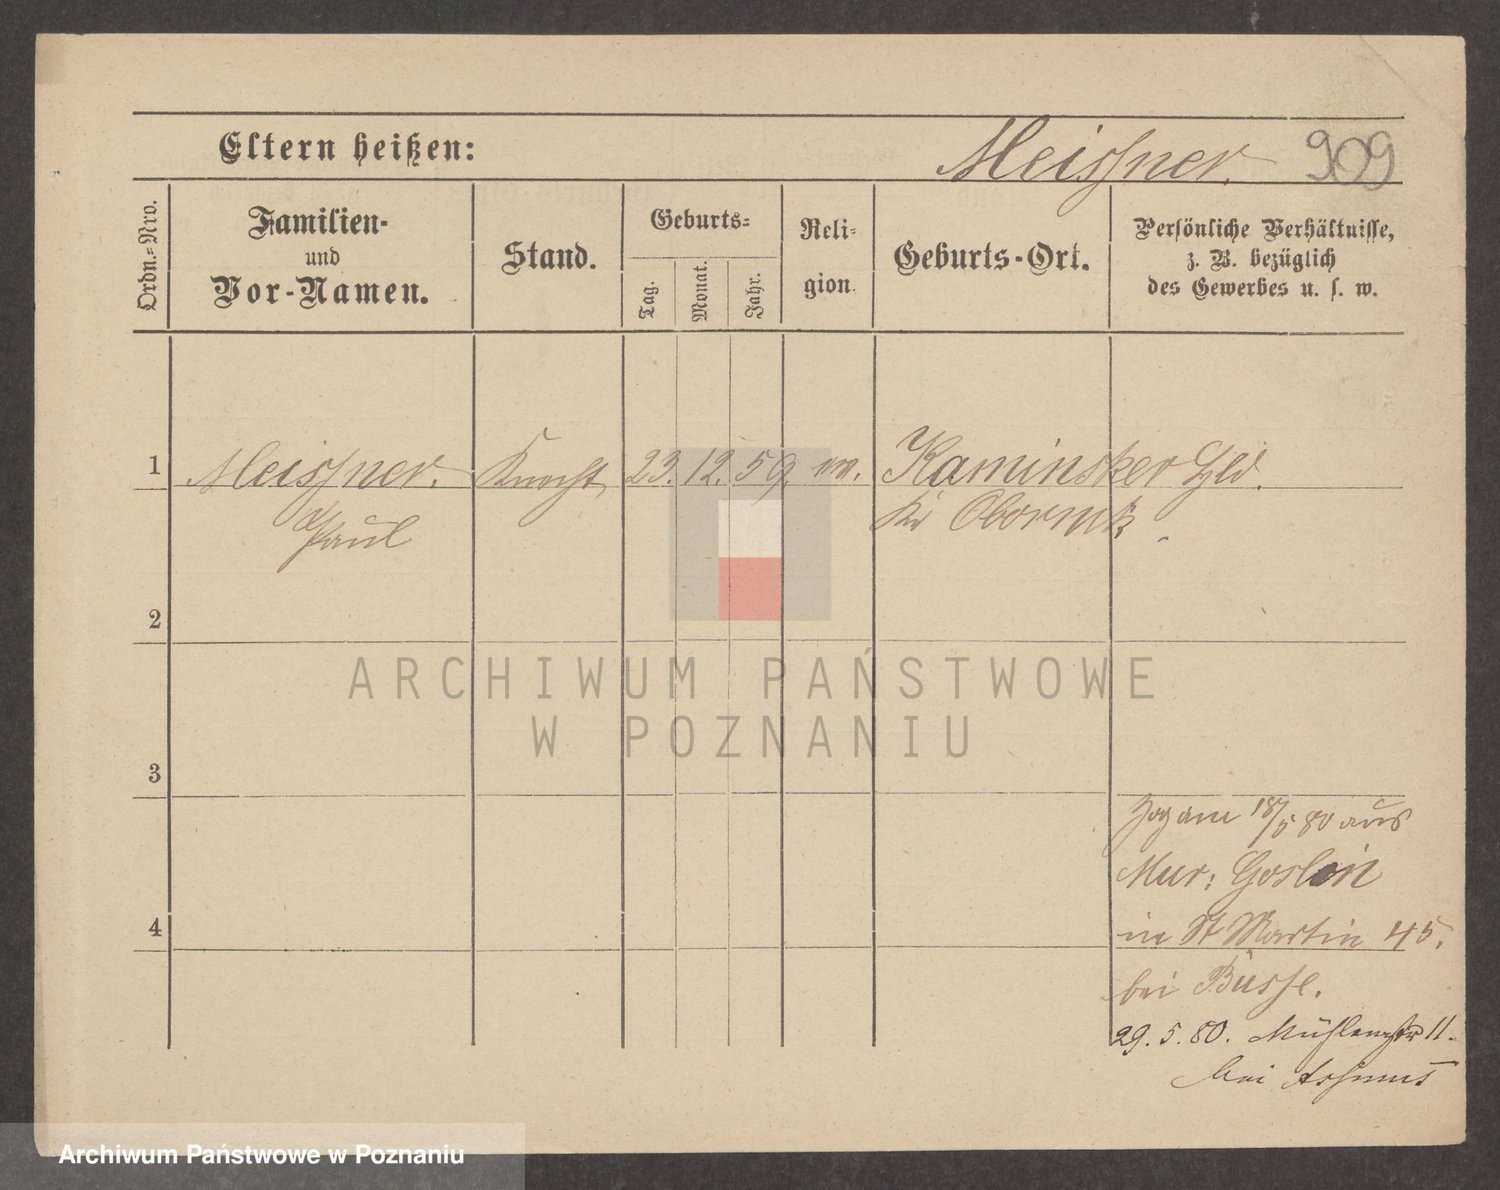 Eltern heißen: Meissner. 909
Ordn.-Nro.
Familien-
und
Vor-Namen.
Stand.
Geburts-
Tag.
Monat.
Jahr.
Reli-
gion.
Geburts-Ort.
Persönliche Verhältnisse,
z. B. bezüglich
des Gewerbes u. s. w.
1 Meissner. Knecht 23. 12. 59. ev. Kaminsker Hld.
Paul Kr Obornik.
2
3
4
Zog am 18/5 80 aus
Mur: Goslin
in St Martin 45.
bei Busse.
29. 5. 80. Mühlenstr 11.
bei Assmus
ARCHIWUM PAŃSTWOWE
W POZNANIU
Archiwum Państwowe w Poznaniu